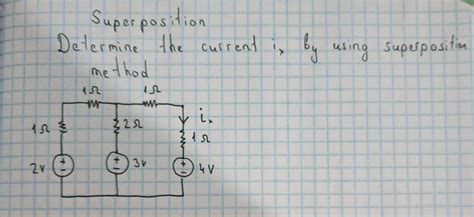 Superposition
Determine the current iₓ by using superposition
method
1Ω 1Ω
1Ω 2Ω iₓ 1Ω
2v 3v 4v